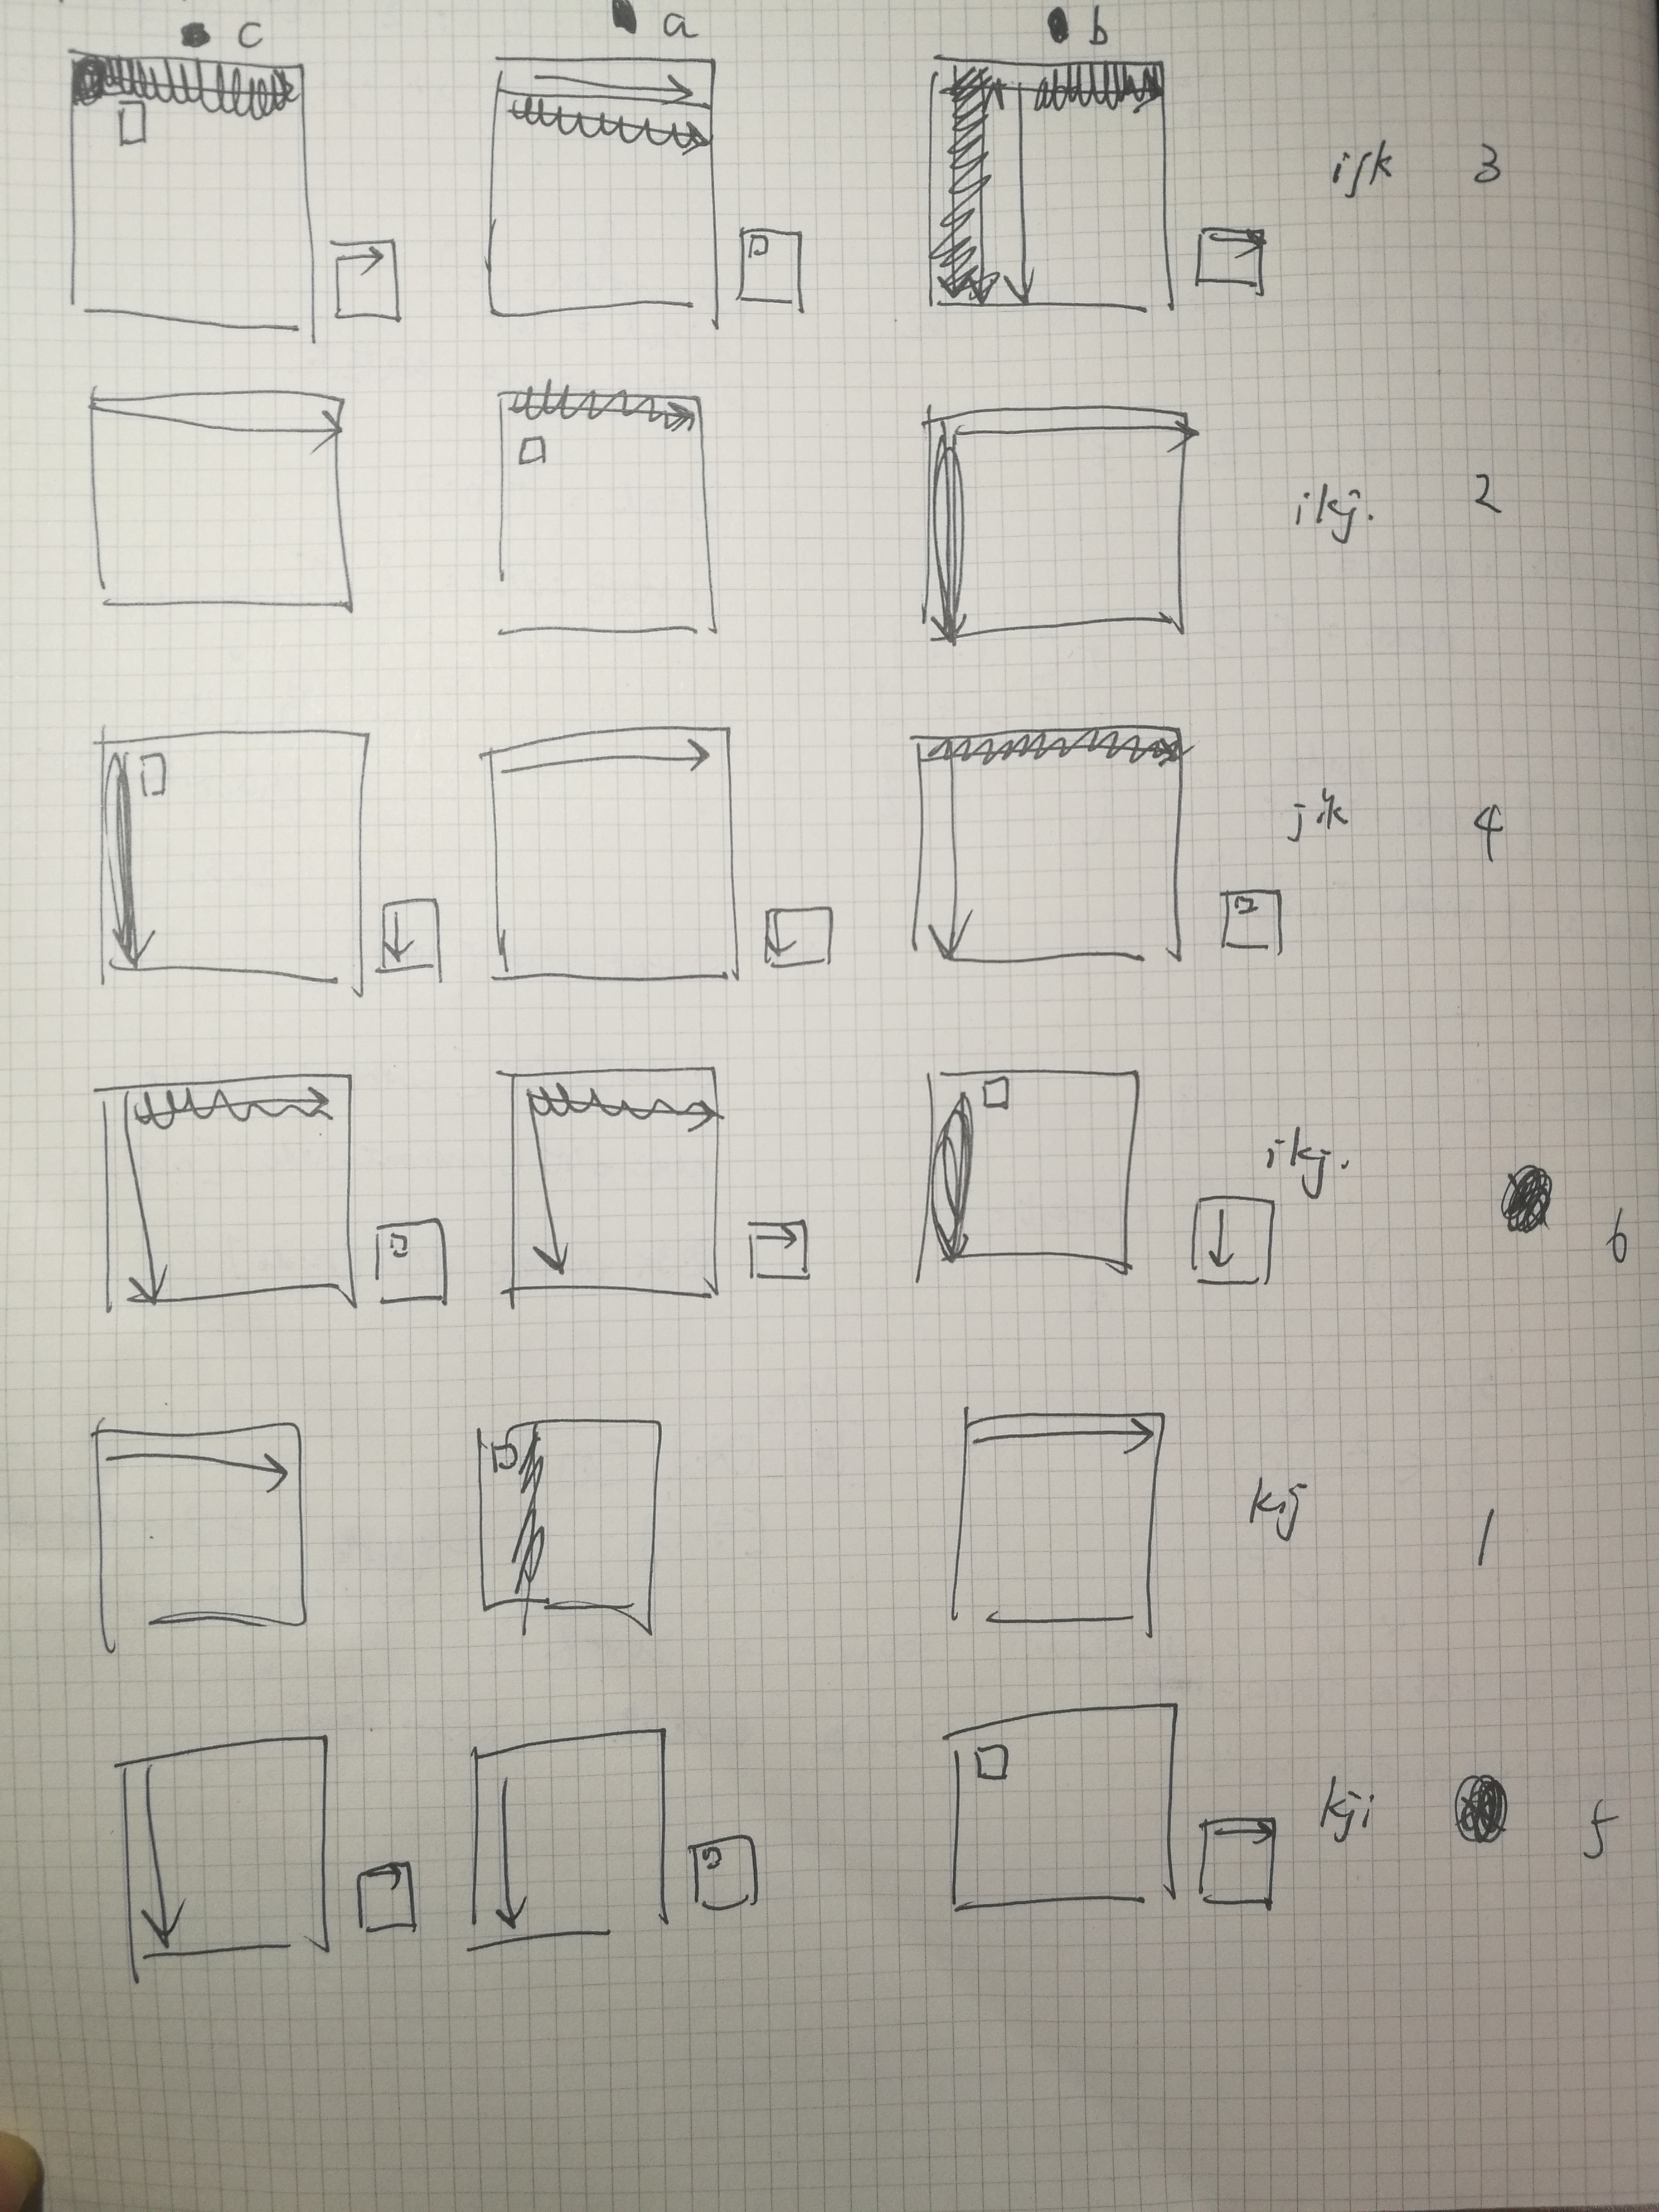 c a b
ijk 3
ikj. 2
jik 4
ikj. 6
kij 1
kji 5